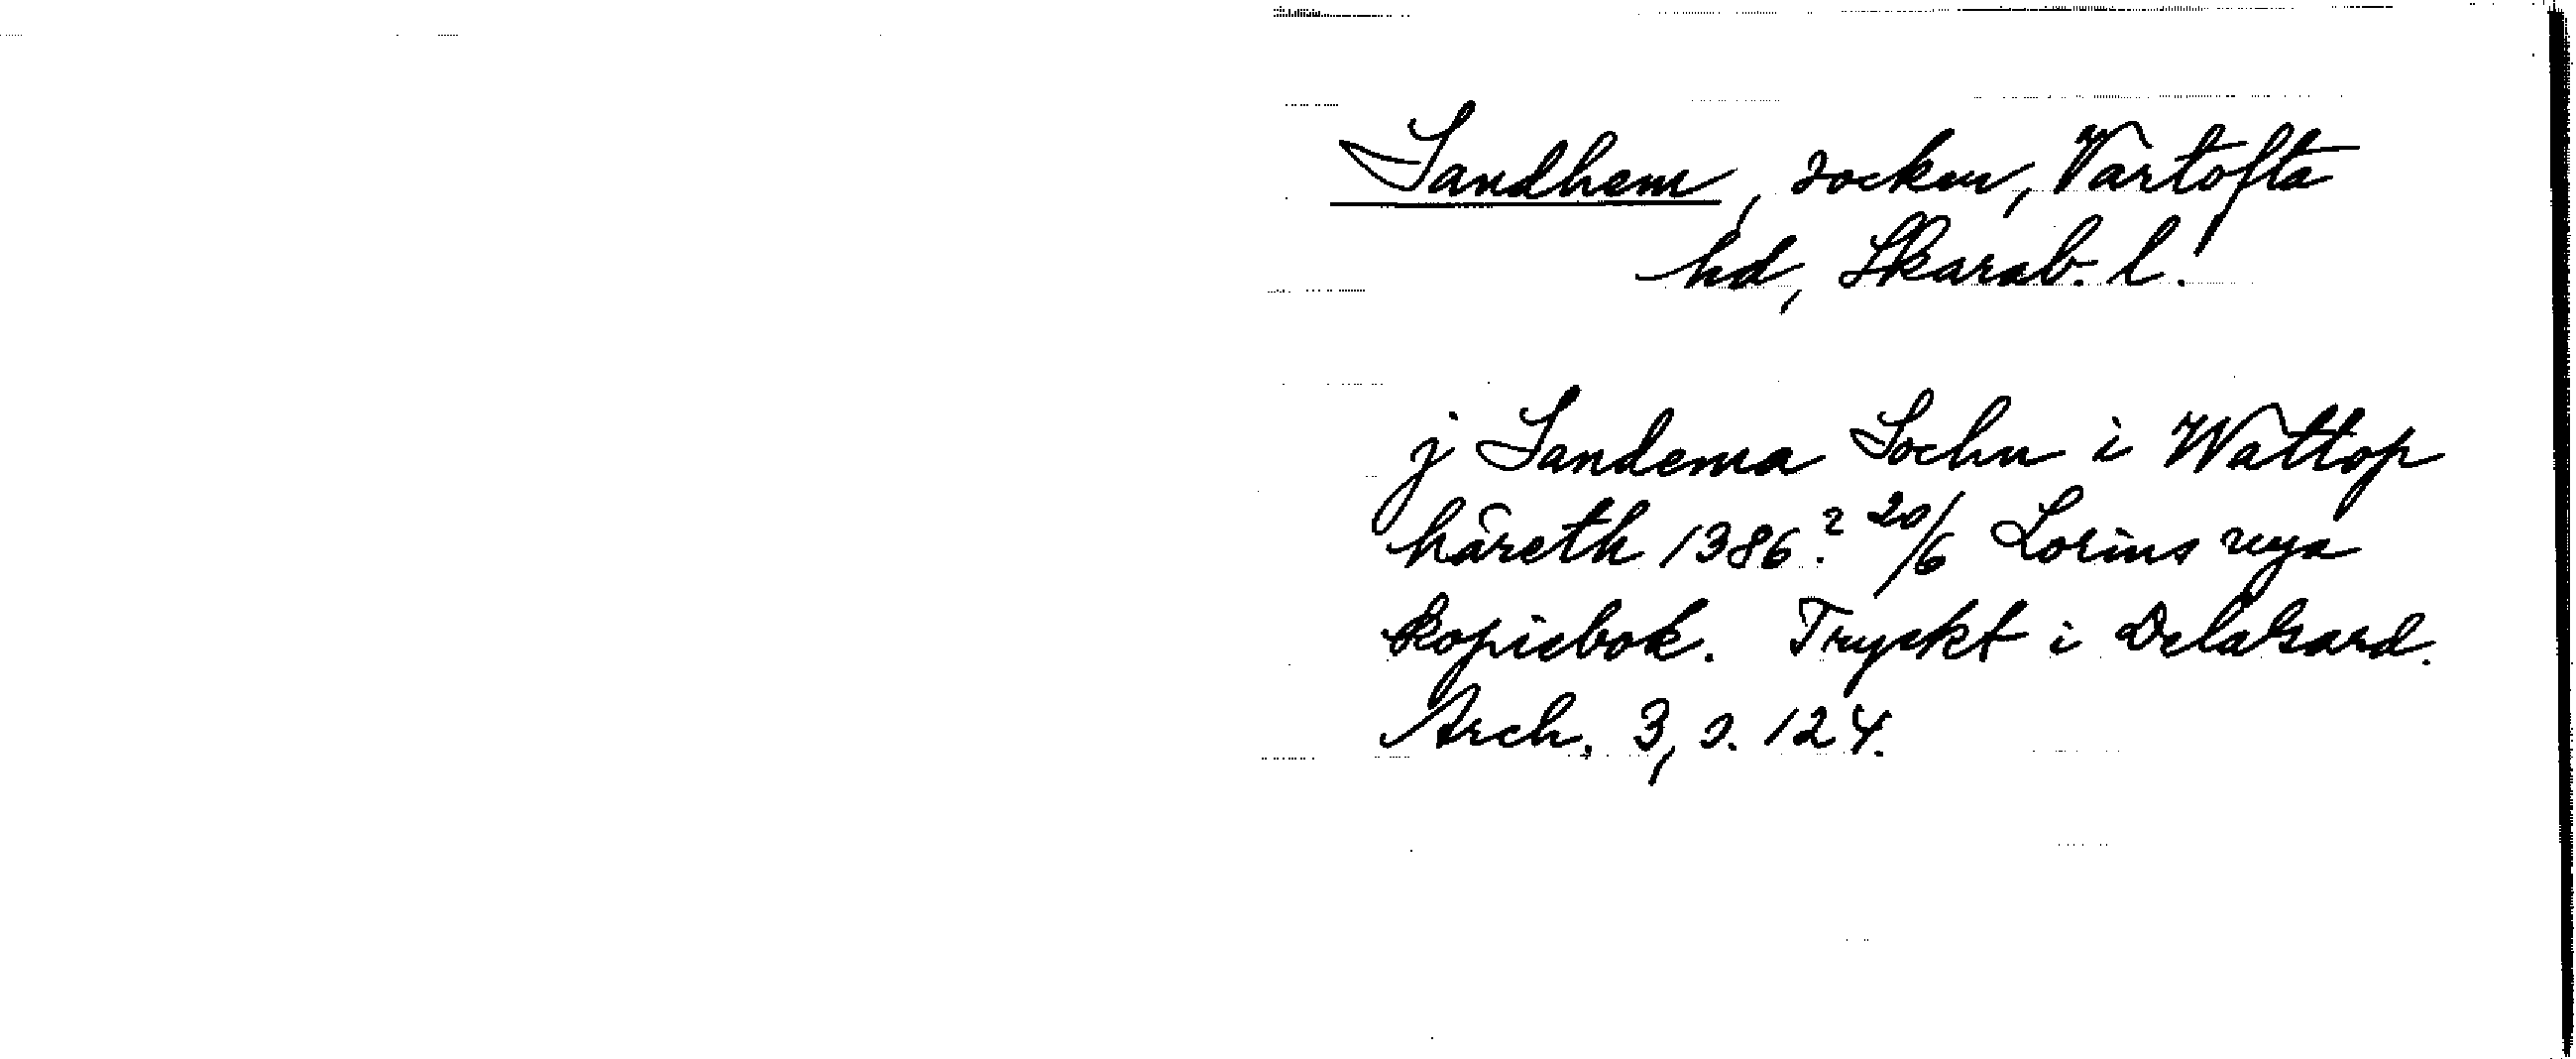 Sandhem, socken, Vartofta
hd, Skarab. l.
j Sandema Sochn i Wattop
häreth 1386? 20/6 Lorins nya
kopiebok. Tryckt i DelaGard.
Arch. 3, s. 124.